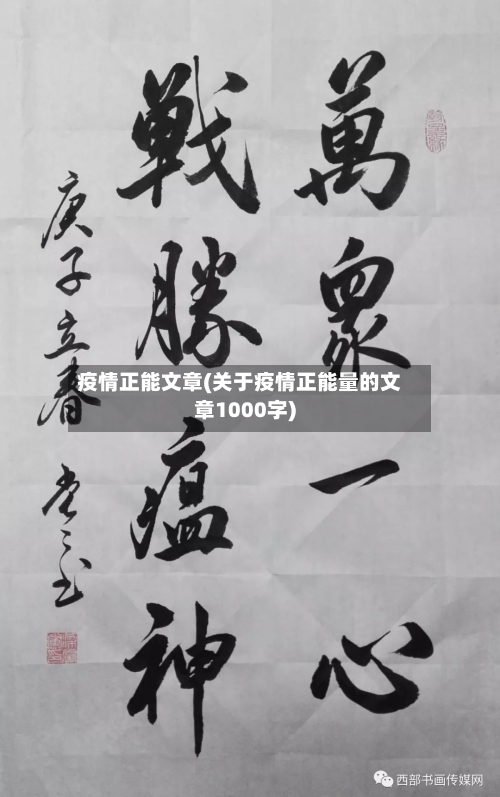 萬眾一心
戰勝瘟神
庚子立春
疫情正能文章(关于疫情正能量的文
章1000字)
西部书画传媒网